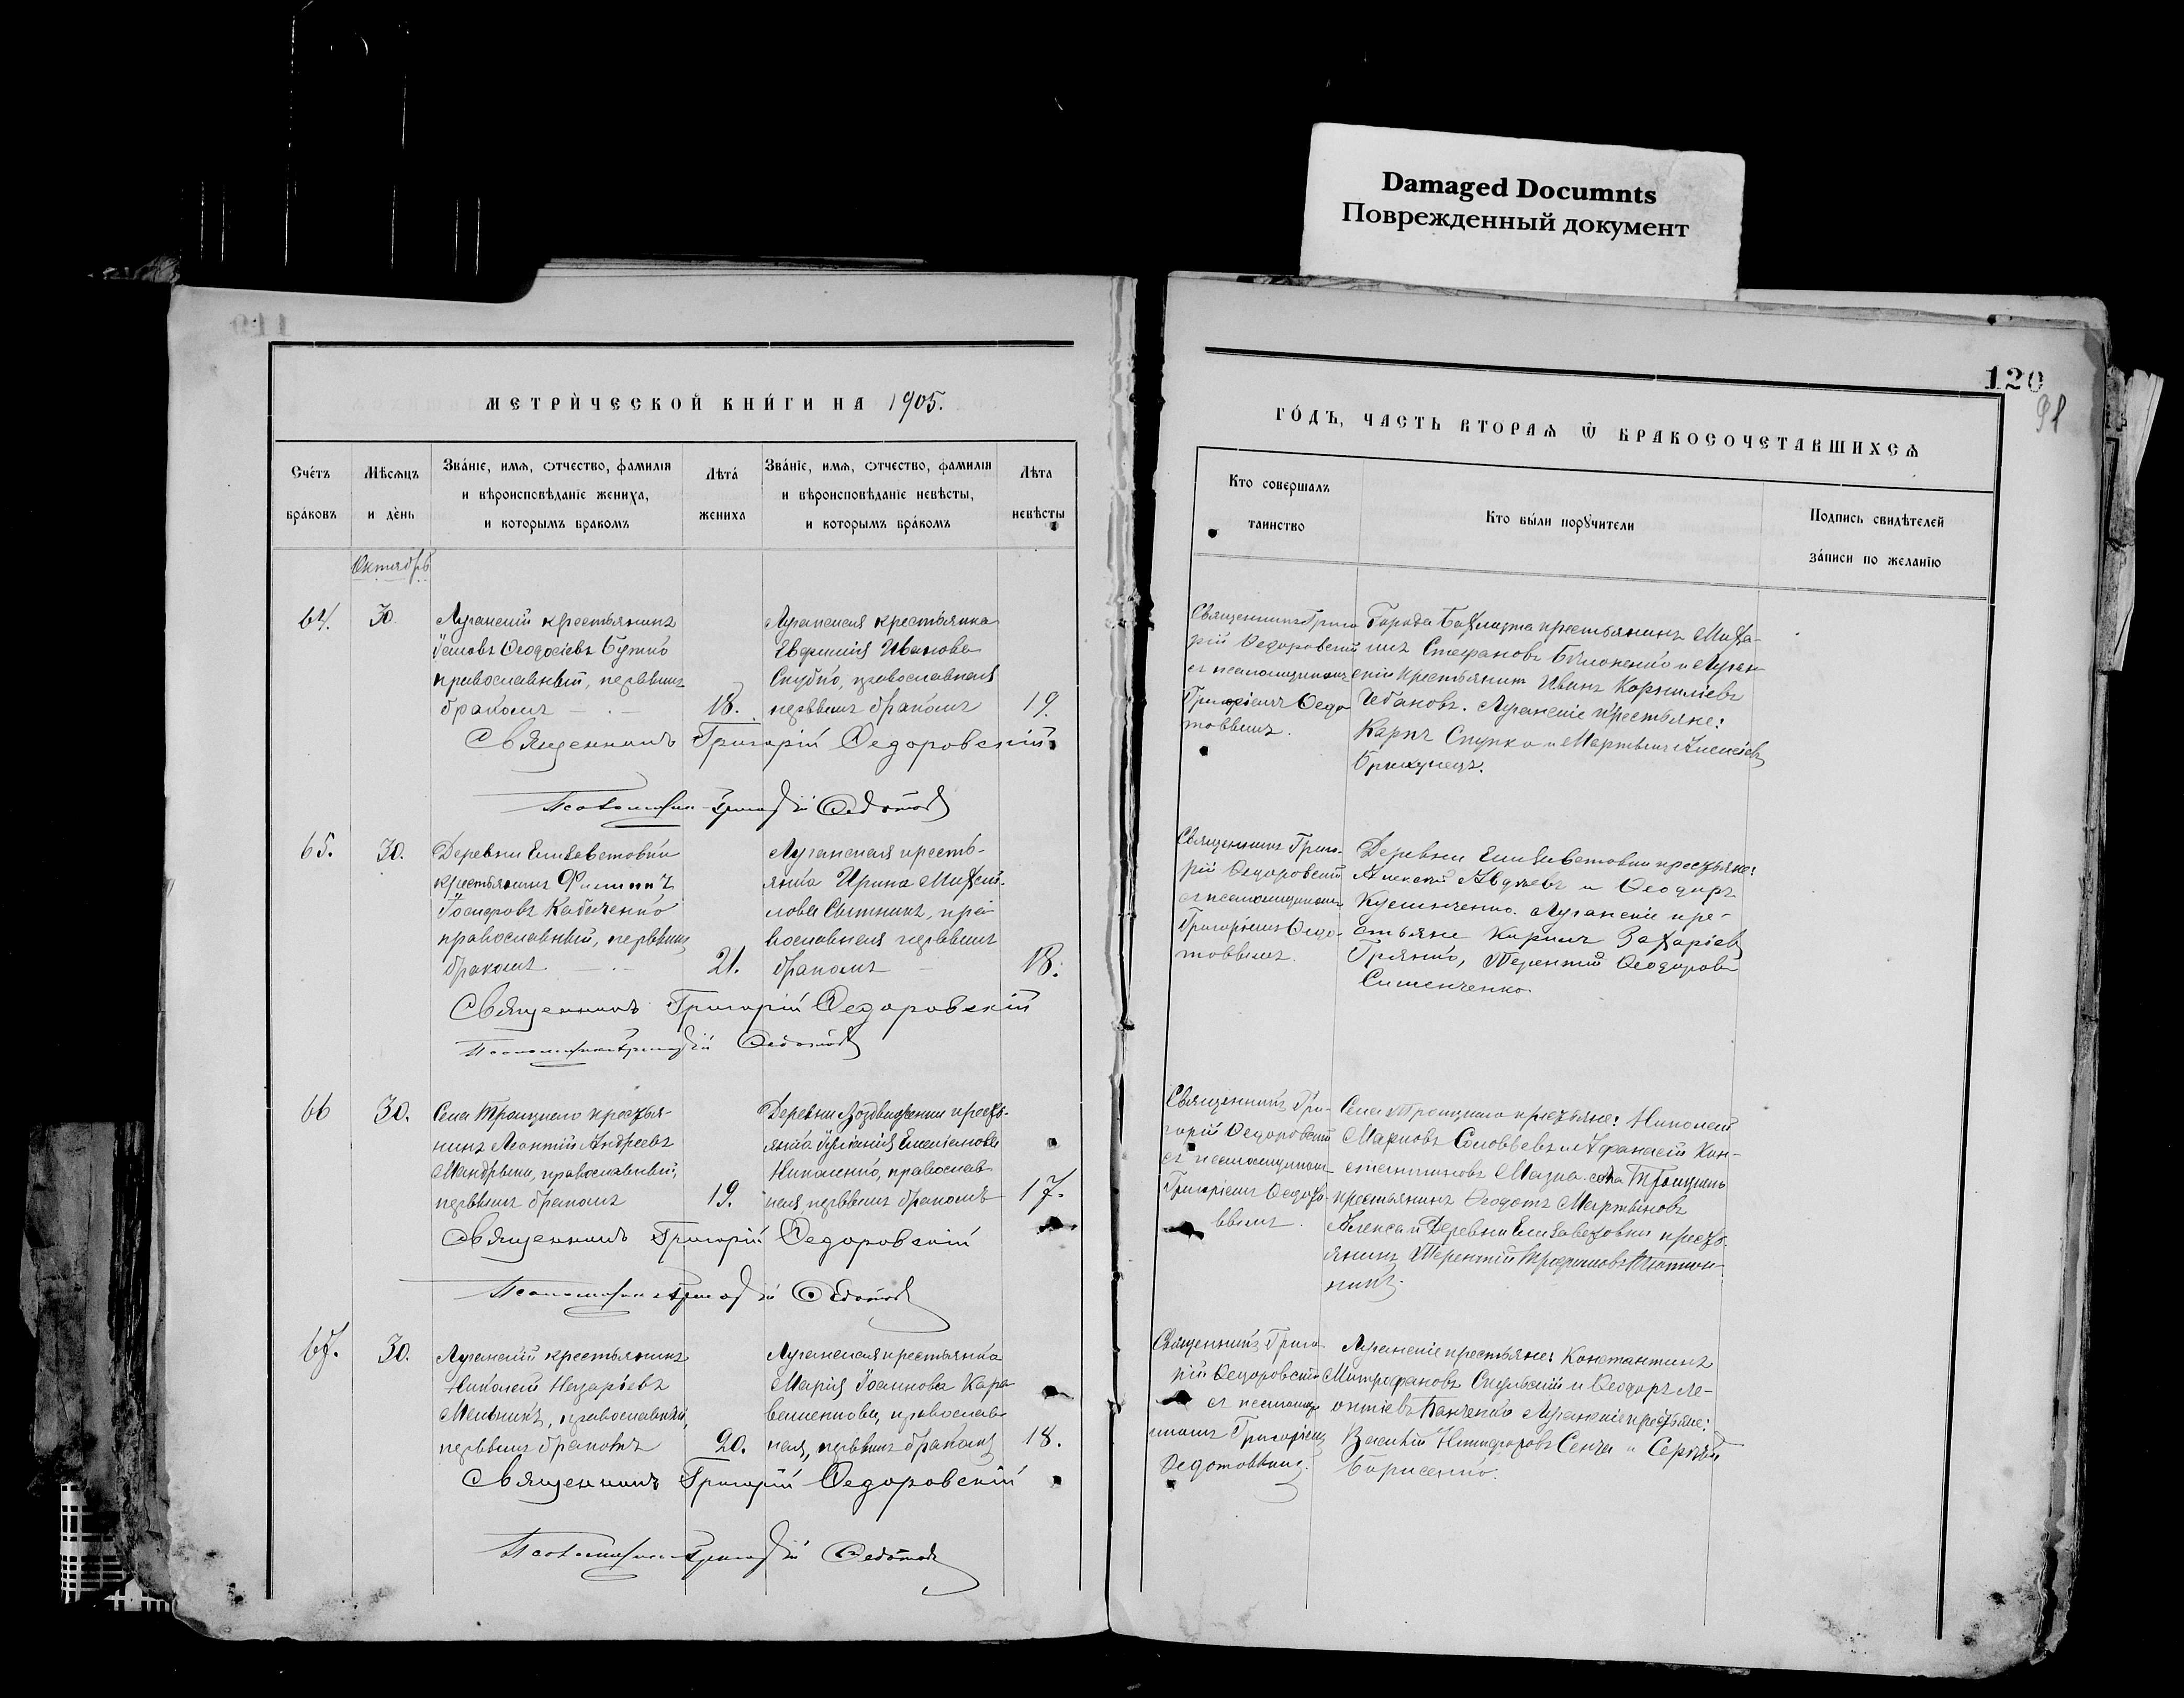 Damaged Documnts
Поврежденный документ
120
91
МЕТРИ́ЧЕСКОЙ КНИ́ГИ НА 1905.
Сче́тъ бра́ковъ
Мѣсяцъ и де́нь
Зва́нїе, имѧ, ѻтчество, фамилїѧ и вѣроисповѣданїе жениха, и которымъ бракомъ
Лѣта́ жениха
Зва́нїе, имѧ, ѻтчество, фамилїѧ и вѣроисповѣданїе невѣсты, и которымъ бра́комъ
Лѣта невѣсты
Октябрь
64.
30.
Луганскій крестьянинъ
Іаковъ Ѳеодосіевъ Бутко
православный, первымъ
бракомъ
18.
Луганская крестьянка
Евфимія Иванова
Скубко, православная
первымъ бракомъ
19.
Священникъ Григорій Ѳедоровскій
Псаломщикъ Григорій Ѳедотов
65.
30.
Деревни Елисаветовки
крестьянинъ Филиппъ
Іосифовъ Кабаченко
православный, первымъ
бракомъ
21.
Луганская кресть-
янка Ирина Михай-
лова Сытникъ, пра-
вославная первымъ
бракомъ
18.
Священникъ Григорій Ѳедоровскій
Псаломщикъ Григорій Ѳедотов
66
30.
Села Троицкаго крестья-
нинъ Леонтій Андреевъ
Мандрыка, православный,
первымъ бракомъ
19.
Деревни Воздвиженки крестья-
янка Іуліанія Емеліанова
Николенко, православ-
ная, первымъ бракомъ
17.
Священникъ Григорій Ѳедоровскій
Псаломщикъ Григорій Ѳедотов
67.
30.
Луганскій крестьянинъ
Николай Назаріевъ
Мельникъ, православный,
первымъ бракомъ
20.
Луганская крестьянка
Марія Іоаннова Кара-
православ-
ная, первымъ бракомъ
18.
Священникъ Григорій Ѳедоровскій
Псаломщикъ Григорій Ѳедотов
ГО́ДЪ, ЧАСТЬ ВТОРАѦ Ѿ БРАКОСОЧЕТАВШИХСѦ
Кто совершалъ таинство
Кто бы́ли порꙋчители
Подпись свидѣтелей за́писи по желанїю
Священникъ Григо
рій Ѳедоровскій
съ псаломщикомъ
Григоріемъ Ѳедо
товымъ.
Города Бахмута крестьянинъ Миха-
илъ Стефановъ Билоненко и Луган-
скій крестьянин Иванъ Корниліевъ
Чебановъ. Луганскіе крестьяне:
Карпъ Скупко и Мартынъ Алексіевъ
Священникъ Григо-
рій Ѳедоровскій
съ псаломщикомъ
Григоріемъ Ѳедо-
товымъ.
Деревни Елисаветовки крестьяне:
Алексій Авдѣевъ и Ѳеодоръ
Кузьминченко. Луганскіе кре-
стьяне Кириллъ Захаріевъ
Грянко, Терентій Ѳеодоровъ
Сименченко.
Священникъ Гри-
горій Ѳедоровскій
съ псаломщиком
Григоріемъ Ѳедото-
вымъ.
Села Троицкаго крестьяне: Николай
Марковъ Соловьевъ и Афанасій Кон-
стантиновъ Мазка. села Троицкаго
крестьянинъ Ѳеодотъ Мартыновъ
Алекса и Деревни Елисаветовки кресть-
янинъ Терентій Трофимовъ Плотни-
никъ.
Священникъ Григо-
рій Ѳедоровскій
съ псаломщи
комъ Григоріемъ
Ѳедотовымъ.
Луганскіе крестьяне: Константинъ
Митрофановъ Скубскій и Ѳеодоръ Ле-
онтіевъ Панченко Луганскіе крестьяне:
Василій Никифоровъ Сенча и Сергѣй
Борисенко.